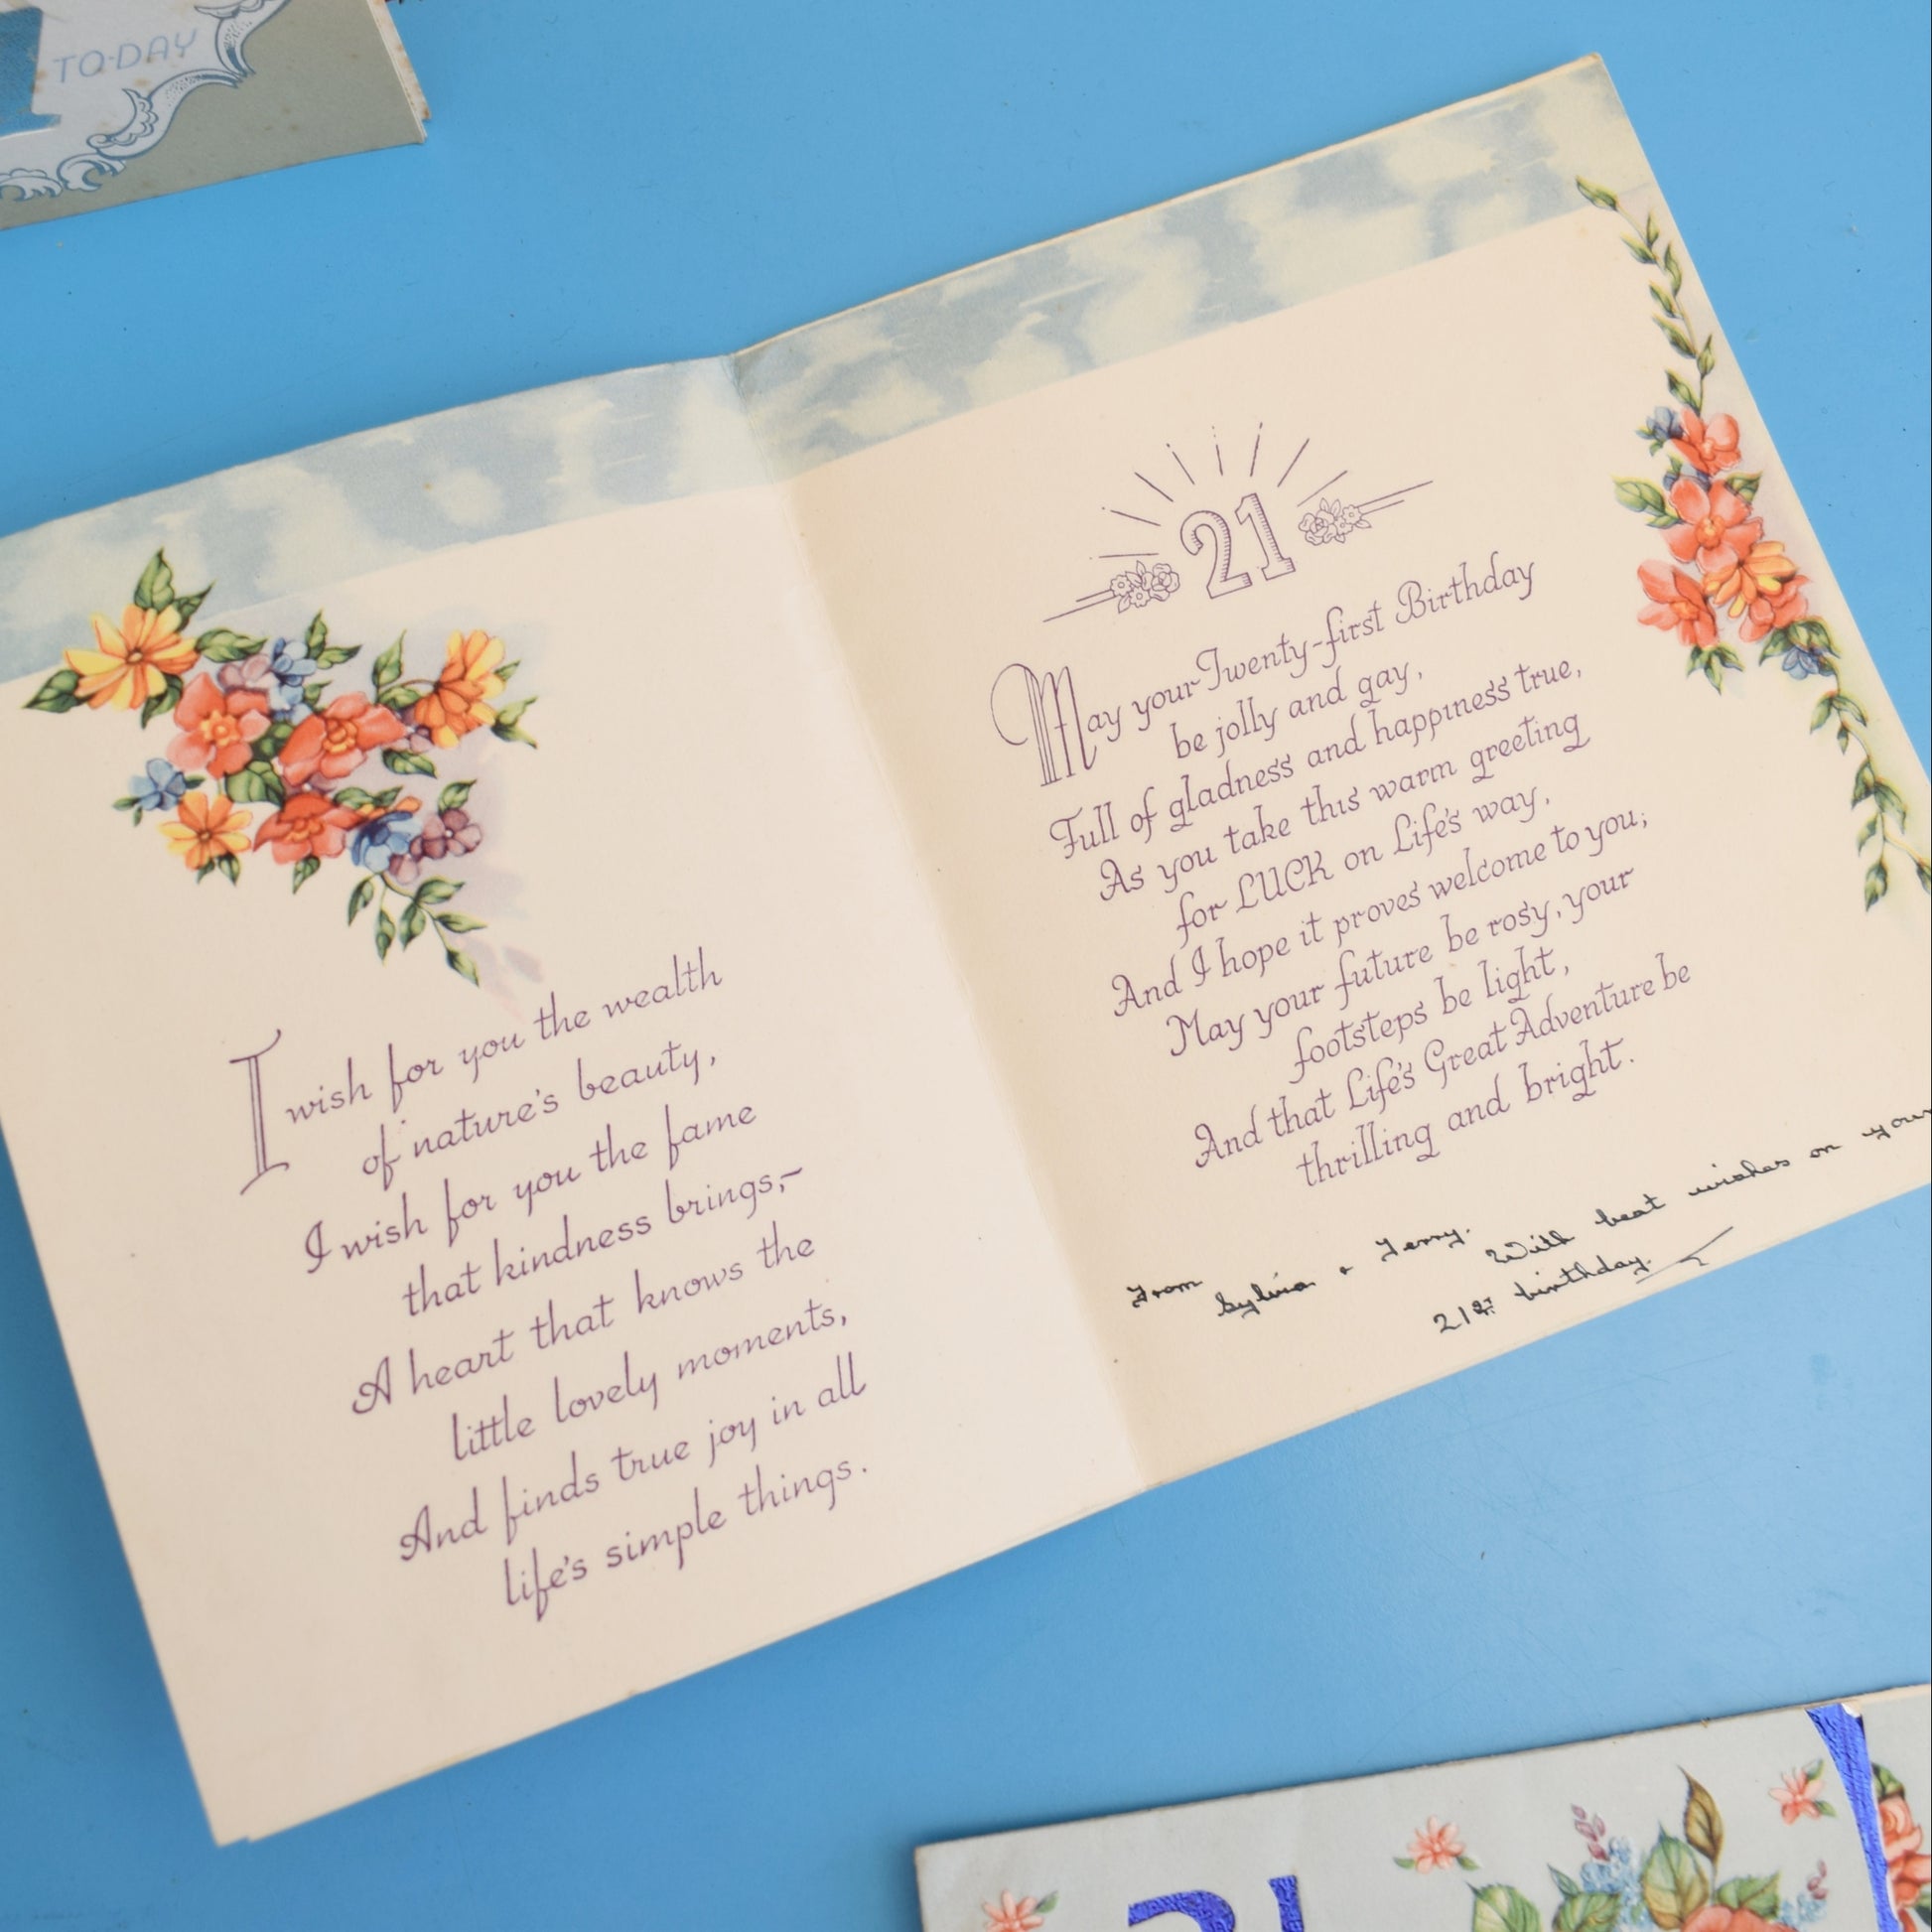 TO·DAY
I wish for you the wealth
of nature's beauty,
I wish for you the fame
that kindness brings,—
A heart that knows the
little lovely moments,
And finds true joy in all
life's simple things.
21
May your Twenty-first Birthday
be jolly and gay,
Full of gladness and happiness true,
As you take this warm greeting
for LUCK on Life's way,
And I hope it proves welcome to you;
May your future be rosy, your
footsteps be light,
And that Life's Great Adventure be
thrilling and bright.
From
Sylvia & Terry.
With best wishes on your
21st birthday.
21